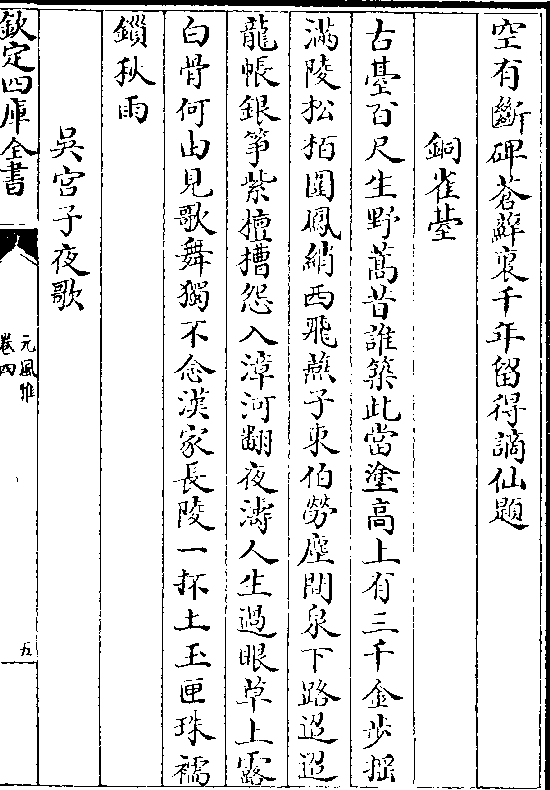 空有斷碑蒼蘚裏千年留得謫仙題
銅雀臺
古臺百尺生野蒿昔誰築此當塗高上有三千金步搖
滿陵松栢圍鳳綃西飛燕子東伯勞塵間泉下路迢迢
龍帳銀箏紫檀槽怨入漳河翻夜濤人生過眼草上露
白骨何由見歌舞獨不念漢家長陵一抔土玉匣珠襦
鎖秋雨
吳宮子夜歌
欽定四庫全書
元風雅
卷四
五